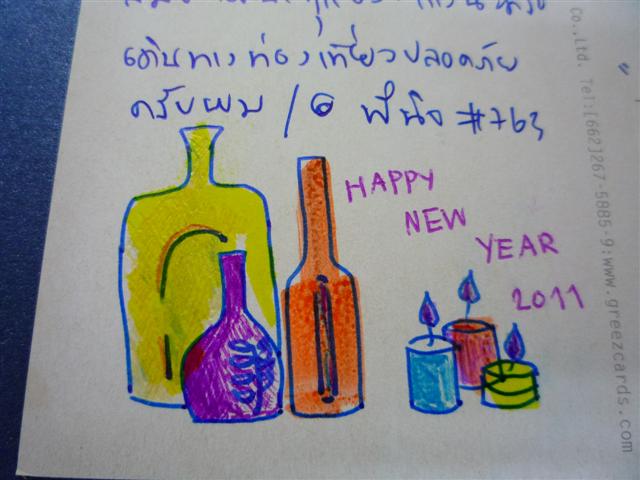 เดินทางท่องเที่ยวปลอดภัย
ครับผม / 6 พินิจ #763
HAPPY
NEW
YEAR
2011
Co.,Ltd. Tel:(662)267-5885-9:www.greezcards.com